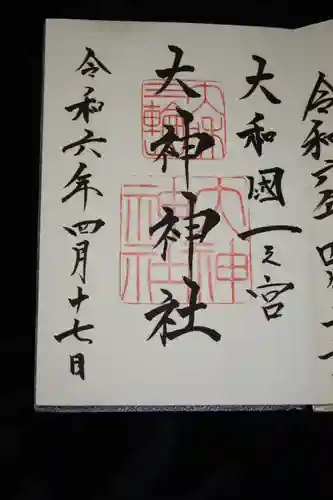 大和國一之宮
大神神社
令和六年四月十七日
大和
三輪
大神
神社
令和